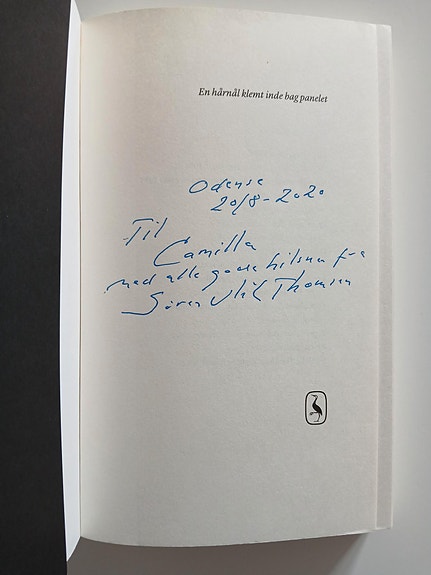 En hårnål klemt inde bag panelet
Odense
20/8-2020
Til
Camilla
med alle gode hilsner fra
Søren Ulrik Thomsen